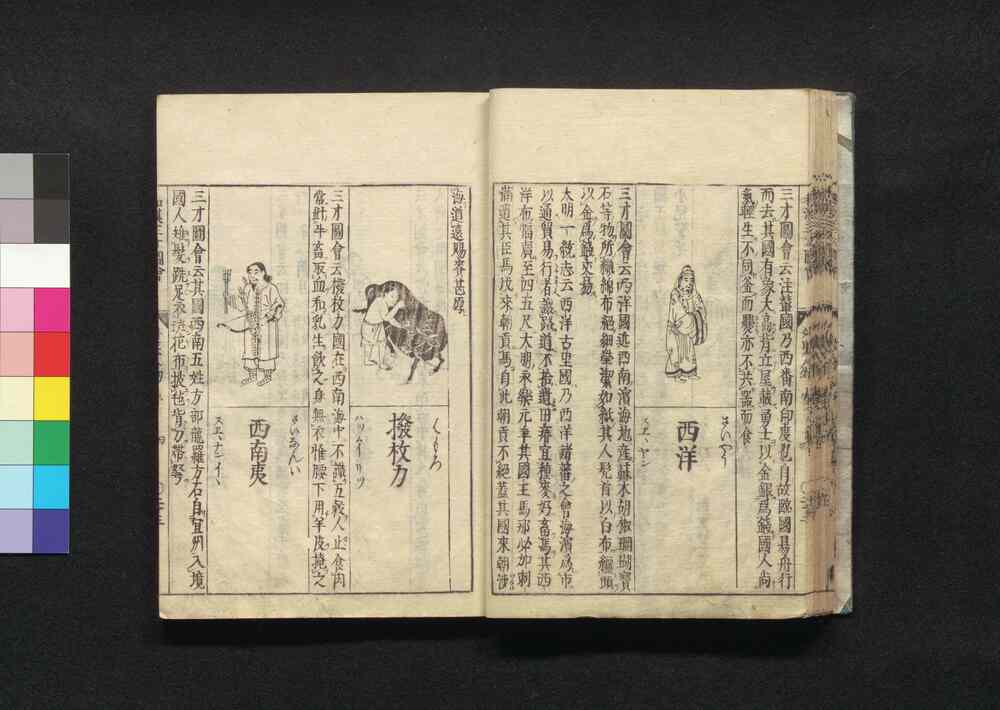 三才圖會云注輦國乃西番南印度也自故臨國易舟行
而去其國有象大高有立屋載勇士以金銀為錢國人尚
氣輕生不同釜而爨亦不共器而食
西洋
さいやう
スエヽヤン
三才圖會云西洋國近西南濱海地產蘇木胡椒珊瑚寶
石等物所織綿布絕細瑩潔如紙其人髠首以白布纏頭
以金為錢交易
大明一統志云西洋古里國乃西洋諸蕃之會海濱為市
以通貿易行者讓路道不拾遺田瘠宜種麥好畜馬其西
洋布幅廣至四五尺大明永樂元年其國王馬那必加剌
滿遣其臣馬戍來朝貢馬自此朝貢不絕蓋其國來朝涉
海道遠賜賚甚厚
撥枚力
ハツムイリツ
三才圖會云撥枚力國在西南海中不識五穀人止食肉
常針牛畜取血和乳生飲之身無衣惟腰下用羊皮掩之
西南夷
せいなんい
スエヽナンイヽ
三才圖會云其國西南五姓方部龍羅方石自宜州入境
國人堆髮跣足衣斑花布披氊背刀帶弩